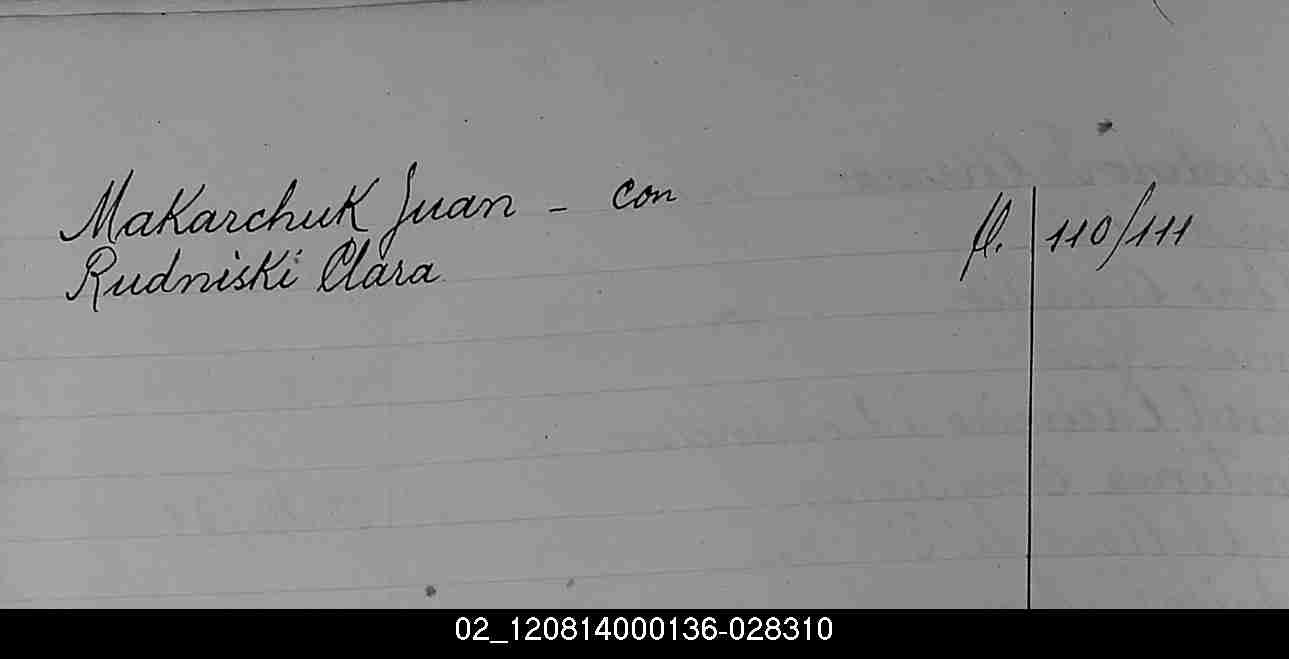 Makarchuk Juan - con
Rudniski Clara
fl. 110/111
02_120814000136-028310